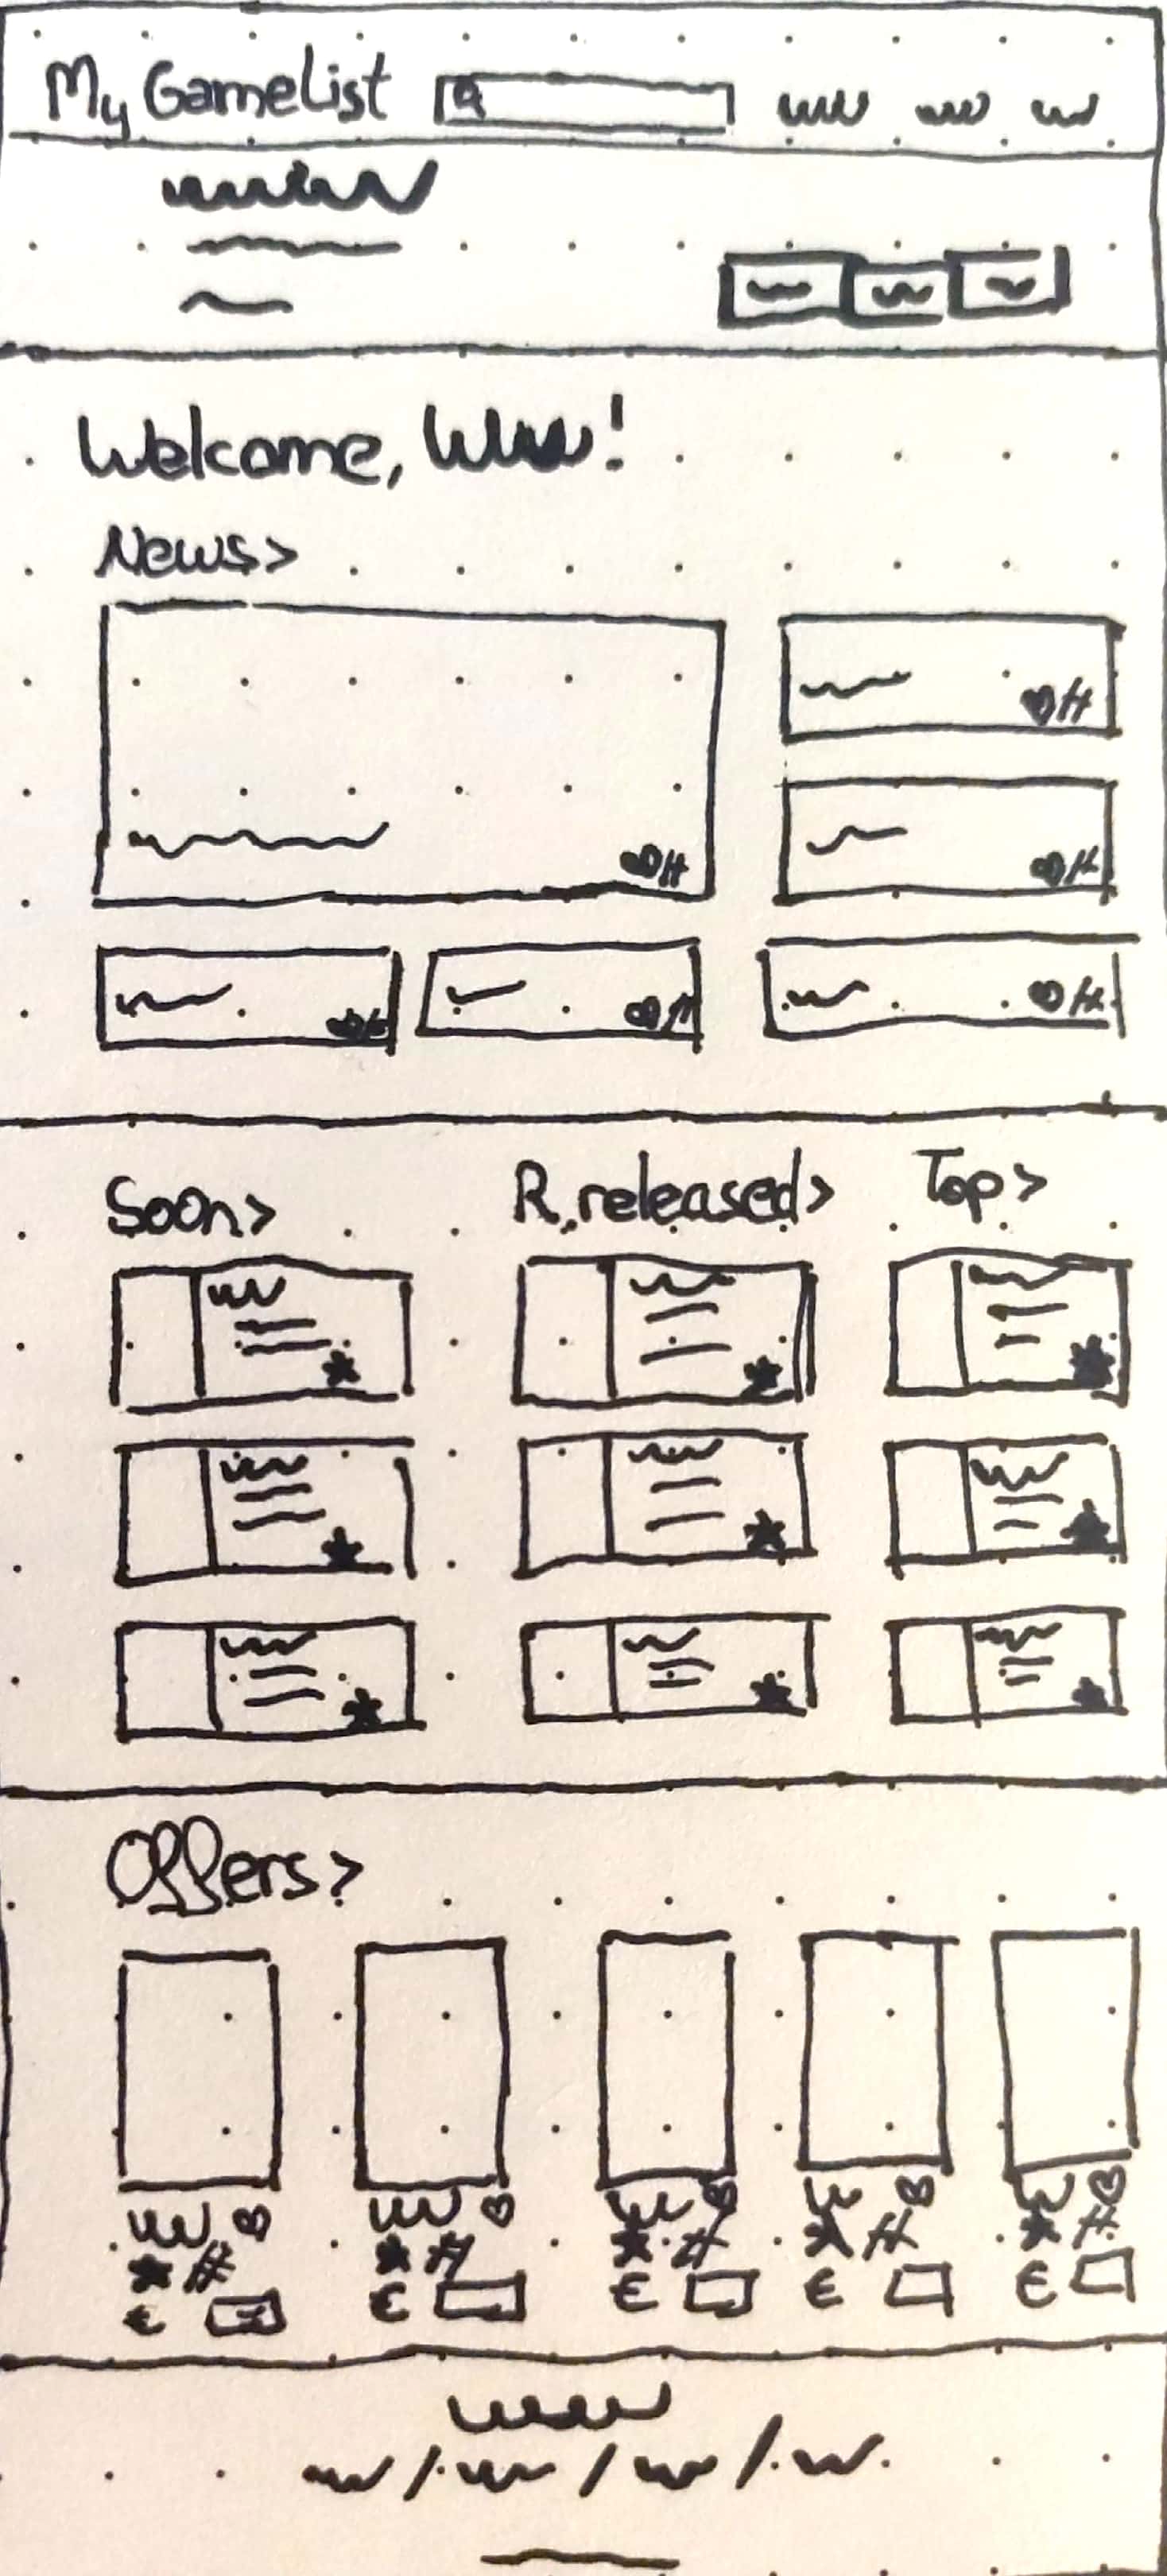 My GameList
Welcome, !
News>
Soon> R.released> Top>
Offers>
€ € € € €